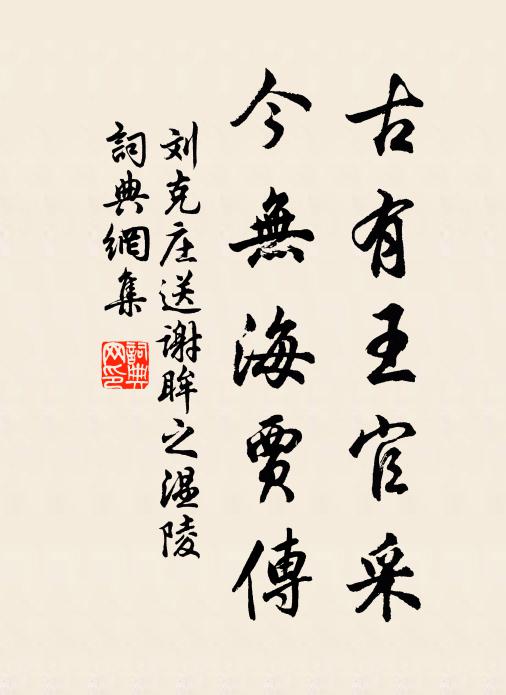 古有王官采
今無海賈傳
刘克庄送谢眸之温陵
詞典網集
詞典網印